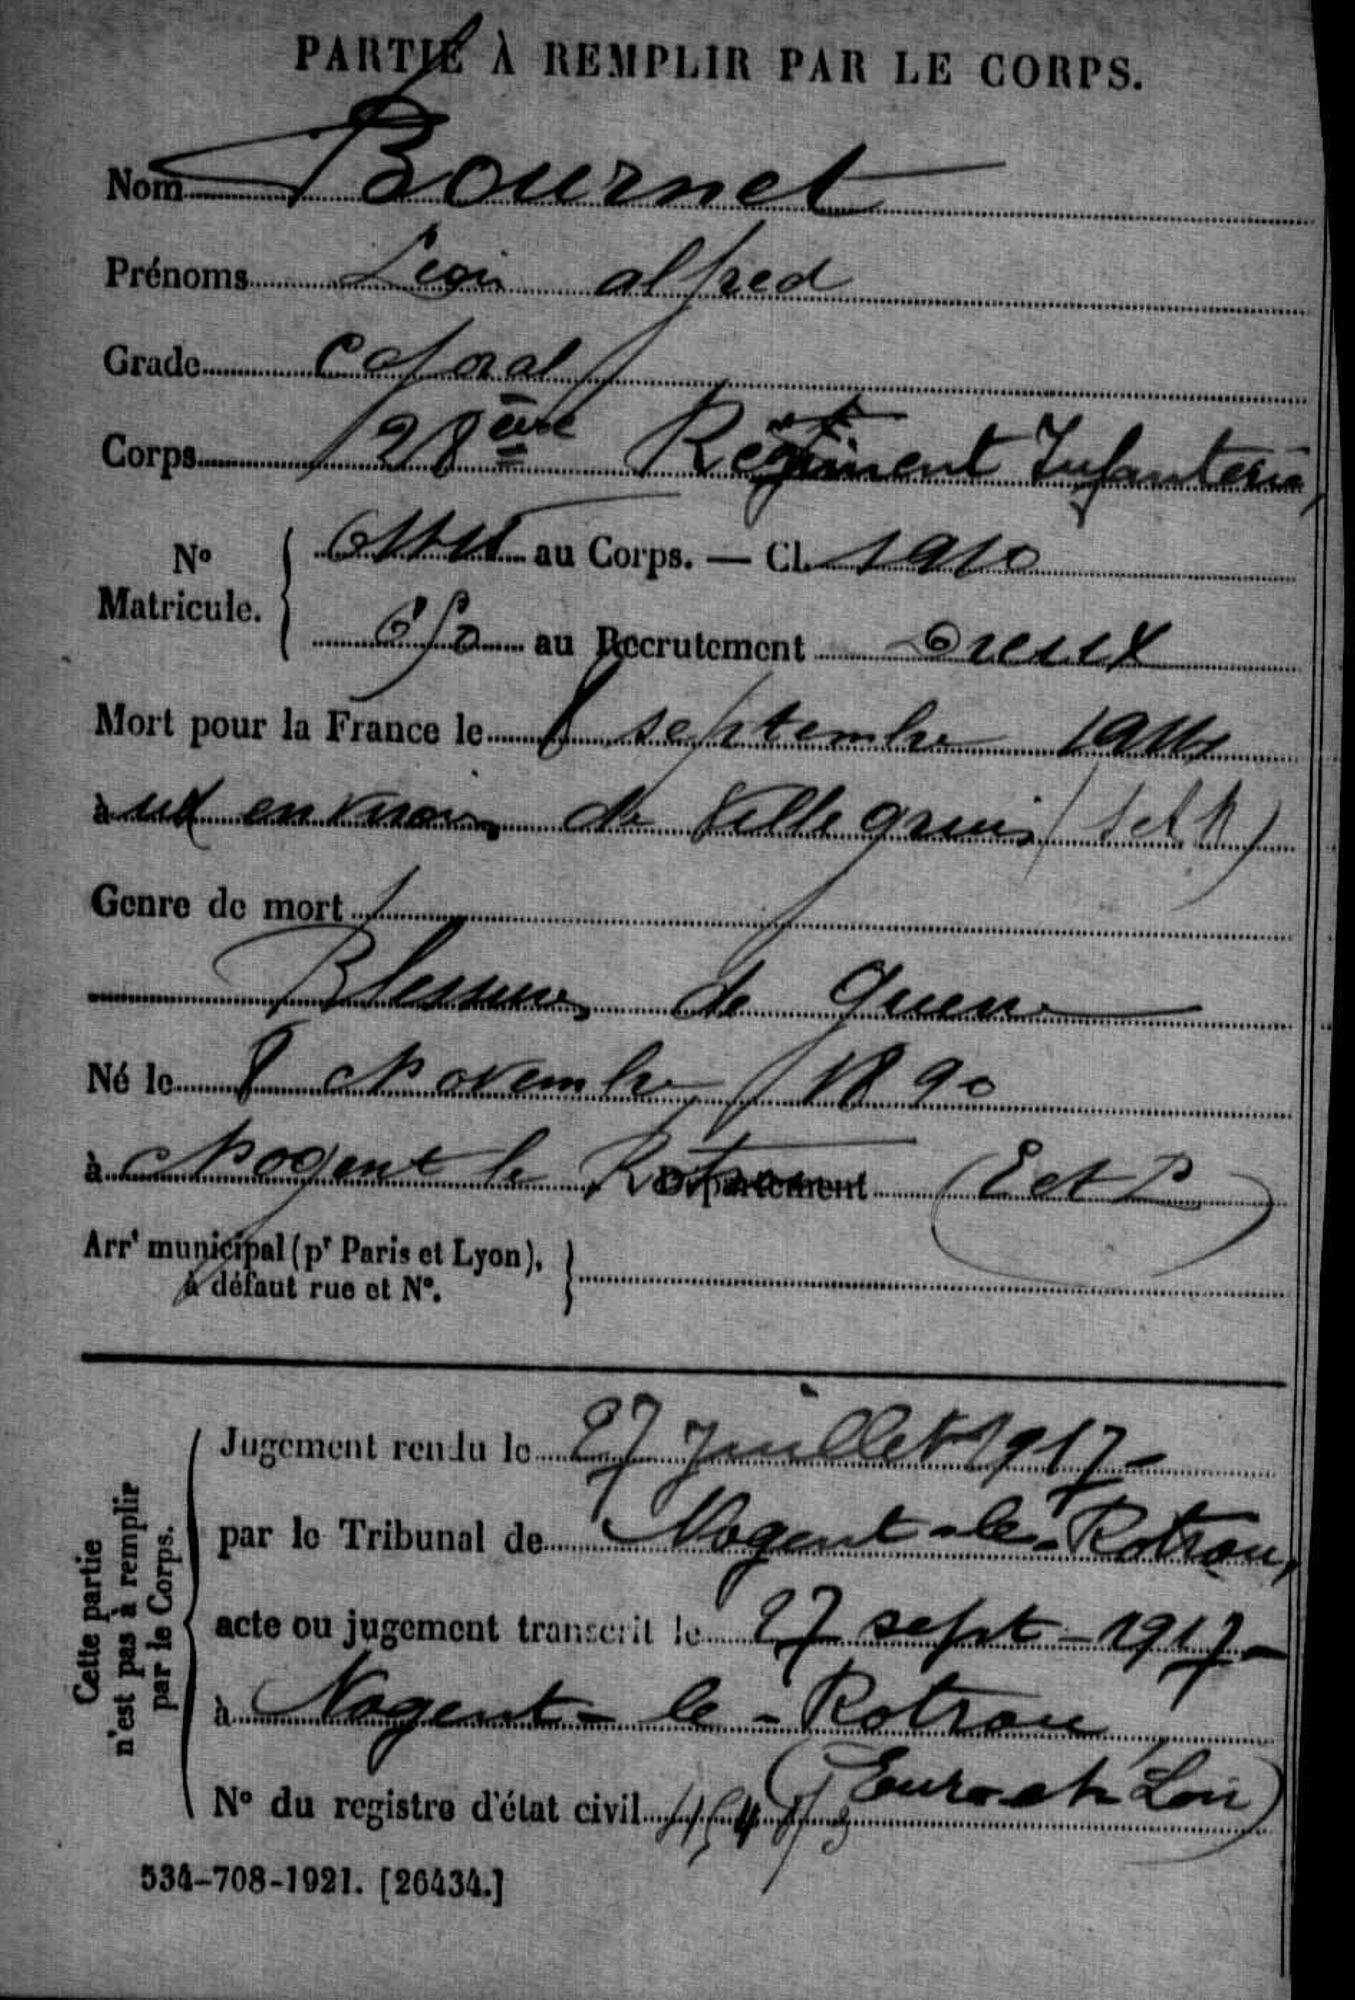 PARTIE À REMPLIR PAR LE CORPS.
Nom Bournet
Prénoms Léon alfred
Grade Caporal
Corps 128ème Régiment Infanterie
N° Matricule. au Corps. — Cl. 1910
650 au Recrutement Dreux
Mort pour la France le 8 septembre 1914
aux environs de Villegruis (S et M)
Genre de mort
Blessures de guerre
Né le 8 Novembre 1890
à Nogent le Rotrou Département (E et L)
Arrt municipal (pr Paris et Lyon),
à défaut rue et N°.
Cette partie
n'est pas à remplir
par le Corps.
Jugement rendu le 27 Juillet 1917 -
par le Tribunal de Nogent-le-Rotrou,
acte ou jugement transcrit le 27 sept - 1917 -
à Nogent-le-Rotrou
(Eure et Loir)
N° du registre d'état civil
534-708-1921. [26434.]